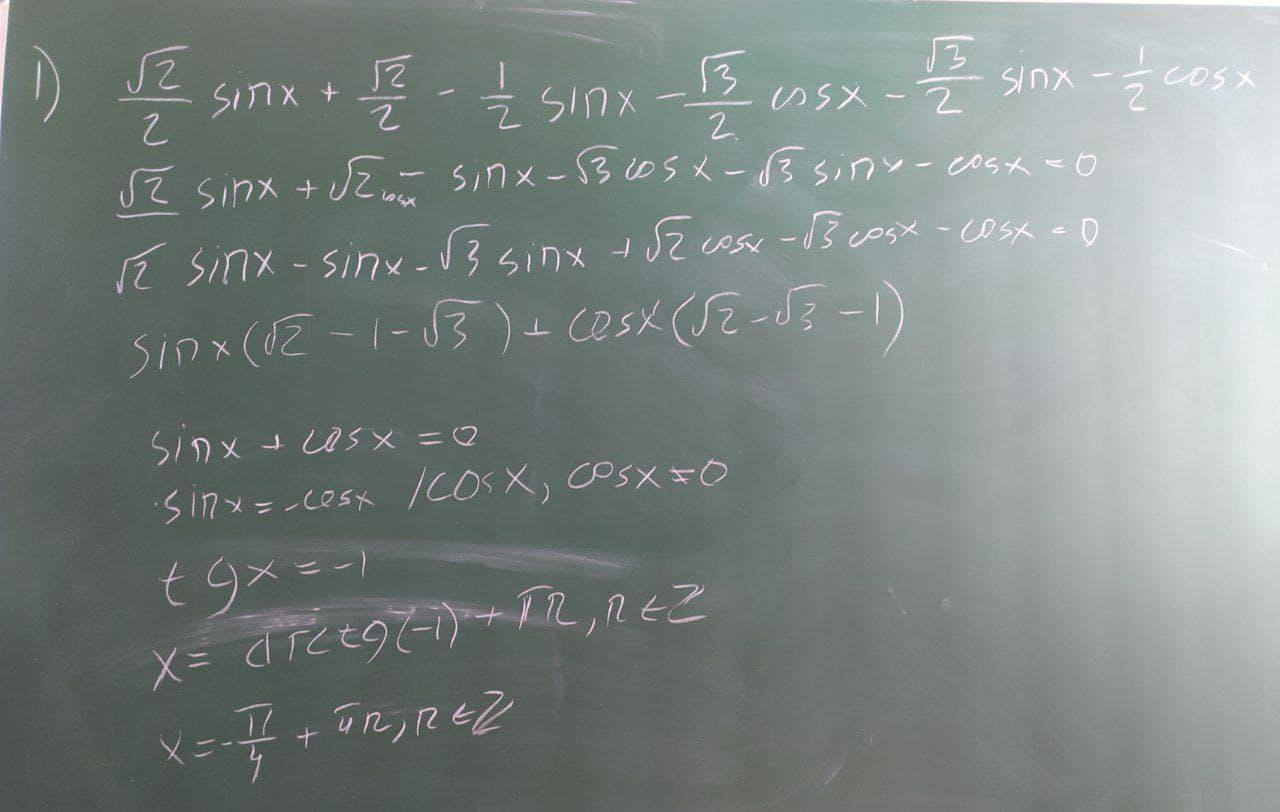 1) √2/2 sinx + √2/2 - 1/2 sinx - √3/2 cosx - √3/2 sinx - 1/2 cosx
√2 sinx + √2 cosx - sinx - √3 cosx - √3 sinx - cosx = 0
√2 sinx - sinx - √3 sinx + √2 cosx - √3 cosx - cosx = 0
sinx(√2 - 1 - √3) + cosx(√2 - √3 - 1)
sinx + cosx = 0
sinx = -cosx /cosx, cosx ≠ 0
tgx = -1
x = arctg(-1) + πn, n ∈ Z
x = -π/4 + πn, n ∈ Z